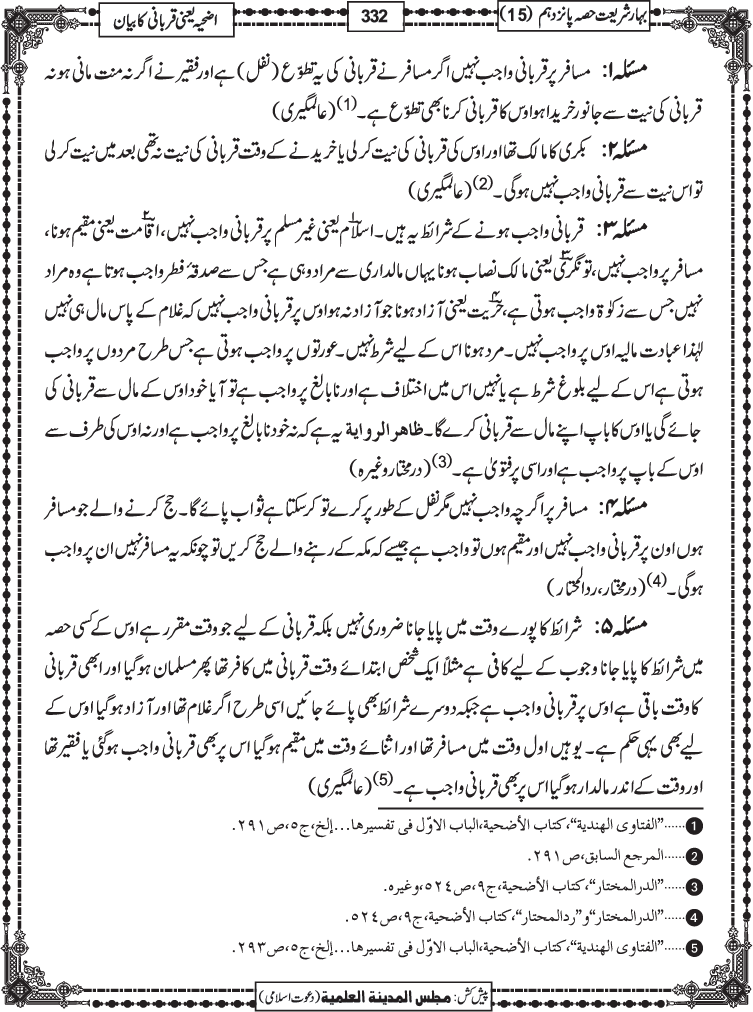 بہار شریعت حصہ پانزدہم (15)
332
اضحیہ یعنی قربانی کا بیان
مسئلہ ۱: مسافر پر قربانی واجب نہیں اگر مسافر نے قربانی کی یہ تطوّع (نفل) ہے اور فقیر نے اگر نہ منت مانی ہو نہ
قربانی کی نیت سے جانور خریدا ہو اوس کا قربانی کرنا بھی تطوّع ہے۔(1) (عالمگیری)
مسئلہ ۲: بکری کا مالک تھا اور اوس کی قربانی کی نیت کر لی یا خریدنے کے وقت قربانی کی نیت نہ تھی بعد میں نیت کر لی
تو اس نیت سے قربانی واجب نہیں ہوگی۔(2) (عالمگیری)
مسئلہ ۳: قربانی واجب ہونے کے شرائط یہ ہیں۔ ۱اسلام یعنی غیر مسلم پر قربانی واجب نہیں، ۲اقامت یعنی مقیم ہونا،
مسافر پر واجب نہیں، ۳تونگری یعنی مالک نصاب ہونا یہاں مالداری سے مراد وہی ہے جس سے صدقۂ فطر واجب ہوتا ہے وہ مراد
نہیں جس سے زکوٰۃ واجب ہوتی ہے، ۴حُریت یعنی آزاد ہونا جو آزاد نہ ہو اوس پر قربانی واجب نہیں کہ غلام کے پاس مال ہی نہیں
لہٰذا عبادت مالیہ اوس پر واجب نہیں۔ مرد ہونا اس کے لیے شرط نہیں۔ عورتوں پر واجب ہوتی ہے جس طرح مردوں پر واجب
ہوتی ہے اس کے لیے بلوغ شرط ہے یا نہیں اس میں اختلاف ہے اور نابالغ پر واجب ہے تو آیا خود اوس کے مال سے قربانی کی
جائے گی یا اوس کا باپ اپنے مال سے قربانی کرے گا۔ ظاهر الرواية یہ ہے کہ نہ خود نابالغ پر واجب ہے اور نہ اوس کی طرف سے
اوس کے باپ پر واجب ہے اور اسی پر فتویٰ ہے۔(3) (درمختار وغیرہ)
مسئلہ ۴: مسافر پر اگرچہ واجب نہیں مگر نفل کے طور پر کرے تو کر سکتا ہے ثواب پائے گا۔ حج کرنے والے جو مسافر
ہوں اون پر قربانی واجب نہیں اور مقیم ہوں تو واجب ہے جیسے کہ مکہ کے رہنے والے حج کریں تو چونکہ یہ مسافر نہیں ان پر واجب
ہوگی۔(4) (درمختار، ردالمحتار)
مسئلہ ۵: شرائط کا پورے وقت میں پایا جانا ضروری نہیں بلکہ قربانی کے لیے جو وقت مقرر ہے اوس کے کسی حصہ
میں شرائط کا پایا جانا وجوب کے لیے کافی ہے مثلاً ایک شخص ابتدائے وقت قربانی میں کافر تھا پھر مسلمان ہوگیا اور ابھی قربانی
کا وقت باقی ہے اوس پر قربانی واجب ہے جبکہ دوسرے شرائط بھی پائے جائیں اسی طرح اگر غلام تھا اور آزاد ہوگیا اوس کے
لیے بھی یہی حکم ہے۔ یوہیں اول وقت میں مسافر تھا اور اثنائے وقت میں مقیم ہوگیا اس پر بھی قربانی واجب ہوگئی یا فقیر تھا
اور وقت کے اندر مالدار ہوگیا اس پر بھی قربانی واجب ہے۔(5) (عالمگیری)
1 ......"الفتاوى الهندية"، كتاب الأضحية، الباب الاوّل فى تفسيرها...إلخ، ج۵، ص۲۹۱.
2 ......المرجع السابق، ص۲۹۱.
3 ......"الدر المختار"، كتاب الأضحية، ج۹، ص۵۲٤، وغيره.
4 ......"الدر المختار" و "رد المحتار"، كتاب الأضحية، ج۹، ص۵۲٤.
5 ......"الفتاوى الهندية"، كتاب الأضحية، الباب الاوّل فى تفسيرها...إلخ، ج۵، ص۲۹۳.
پیش کش: مجلس المدينة العلمية (دعوت اسلامی)